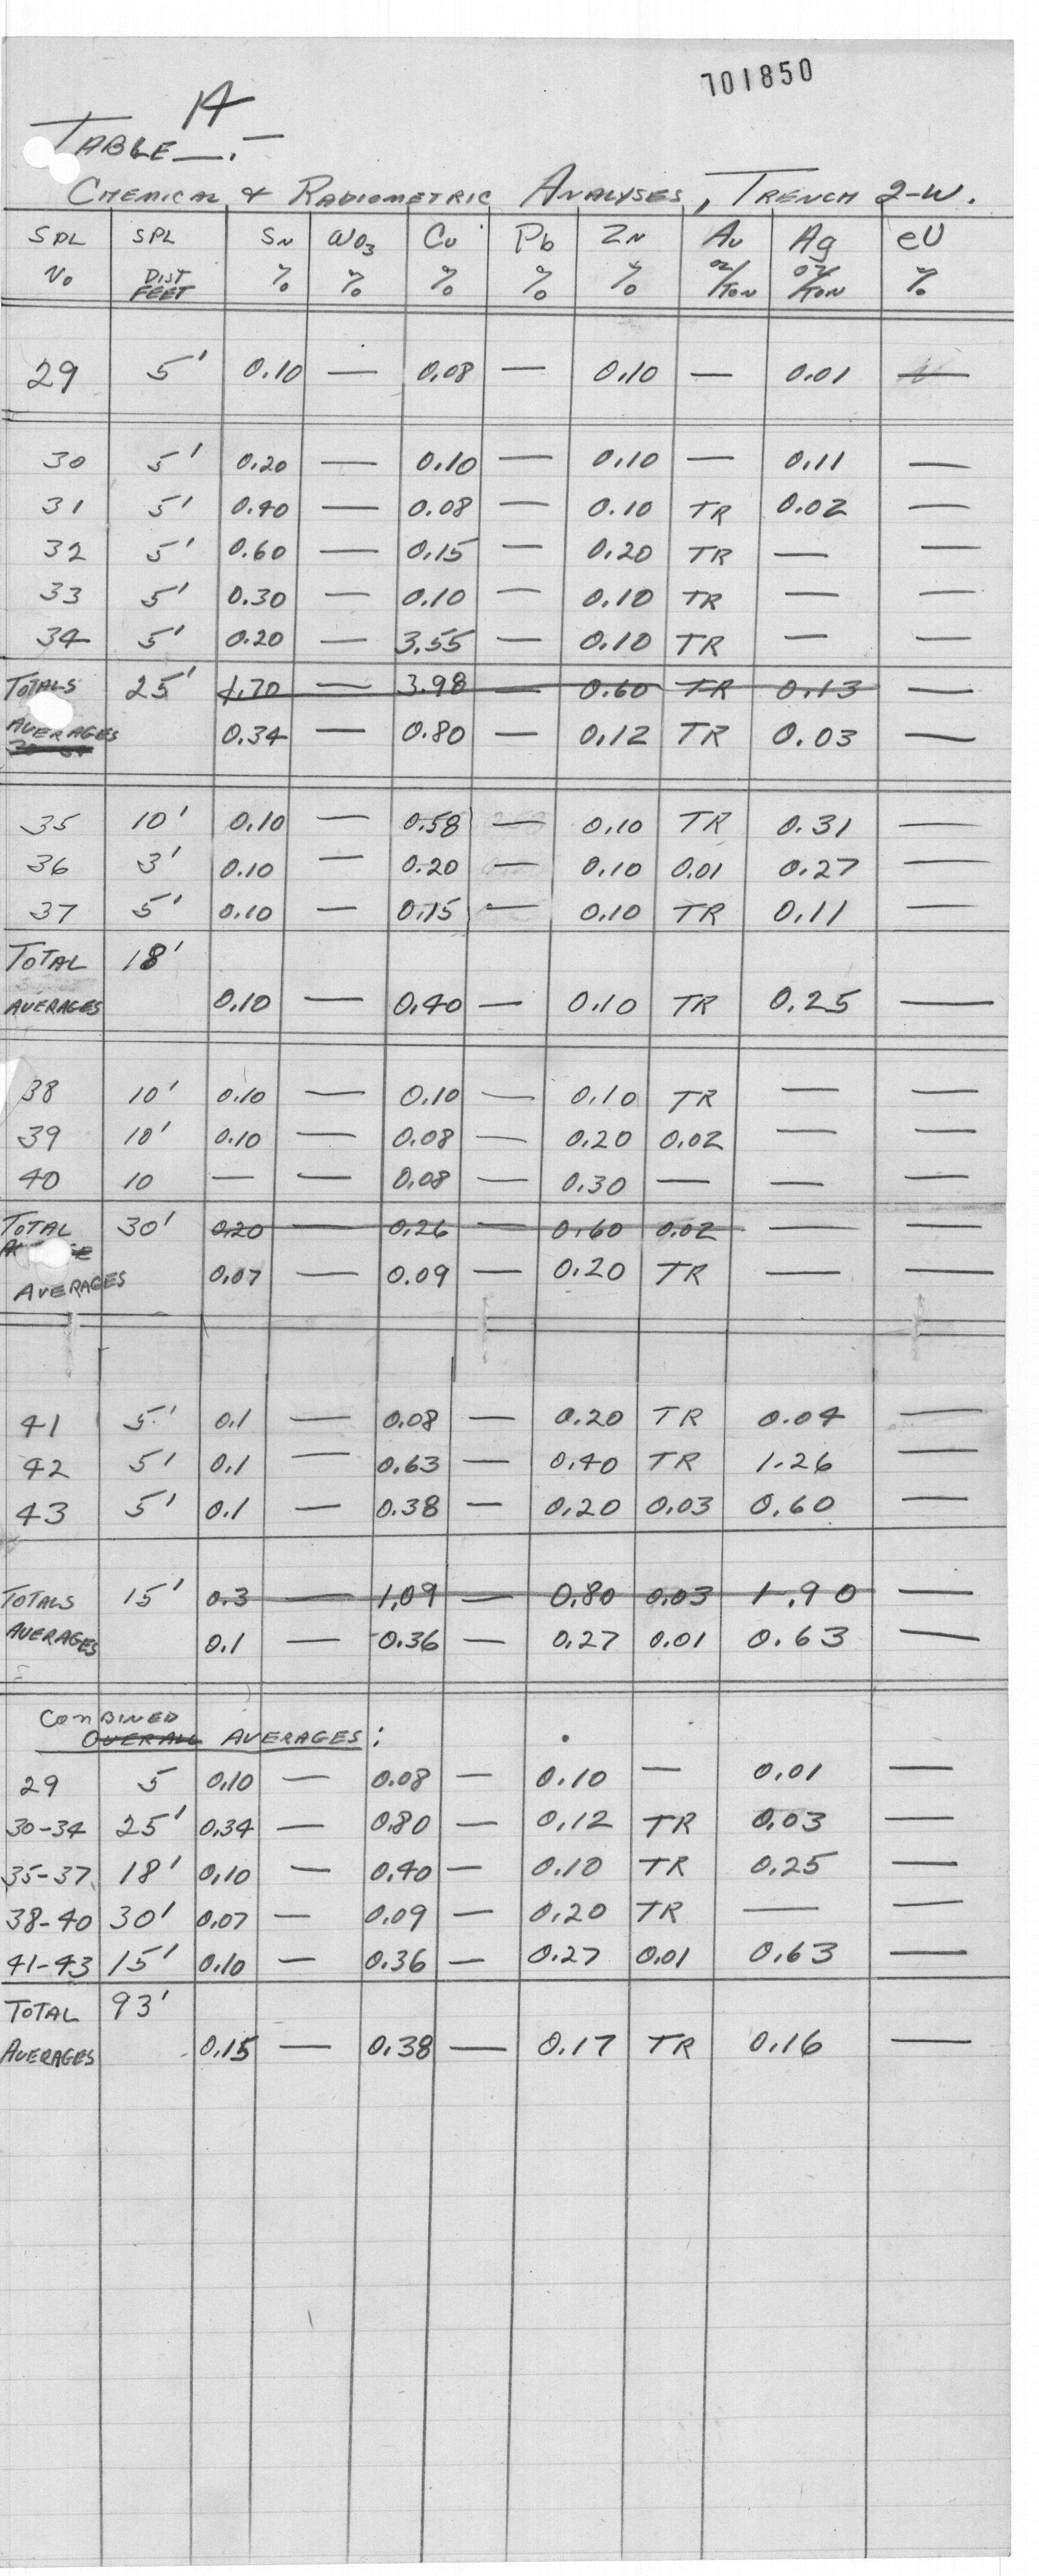 701850
14
TABLE —.—
CHEMICAL & RADIOMETRIC ANALYSES, TRENCH 2-W.
SPL SPL Sn WO3 Cu Pb Zn Au Ag eU
No DIST FEET % % % % % oz/TON oz/TON %
29 5' 0.10 — 0.08 — 0.10 — 0.01 —
30 5' 0.20 — 0.10 — 0.10 — 0.11 —
31 5' 0.40 — 0.08 — 0.10 TR 0.02 —
32 5' 0.60 — 0.15 — 0.20 TR — —
33 5' 0.30 — 0.10 — 0.10 TR — —
34 5' 0.20 — 3.55 — 0.10 TR — —
TOTALS 25' 1.70 — 3.98 — 0.60 TR 0.13 —
AVERAGES 0.34 — 0.80 — 0.12 TR 0.03 —
35 10' 0.10 — 0.58 — 0.10 TR 0.31 —
36 3' 0.10 — 0.20 — 0.10 0.01 0.27 —
37 5' 0.10 — 0.15 — 0.10 TR 0.11 —
TOTAL 18'
AVERAGES 0.10 — 0.40 — 0.10 TR 0.25 —
38 10' 0.10 — 0.10 — 0.10 TR — —
39 10' 0.10 — 0.08 — 0.20 0.02 — —
40 10 — — 0.08 — 0.30 — — —
TOTAL 30' 0.20 — 0.26 — 0.60 0.02 — —
AVERAGES 0.07 — 0.09 — 0.20 TR — —
41 5' 0.1 — 0.08 — 0.20 TR 0.04 —
42 5' 0.1 — 0.63 — 0.40 TR 1.26 —
43 5' 0.1 — 0.38 — 0.20 0.03 0.60 —
TOTALS 15' 0.3 — 1.09 — 0.80 0.03 1.90 —
AVERAGES 0.1 — 0.36 — 0.27 0.01 0.63 —
COMBINED
OVERALL AVERAGES:
29 5 0.10 — 0.08 — 0.10 — 0.01 —
30-34 25' 0.34 — 0.80 — 0.12 TR 0.03 —
35-37 18' 0.10 — 0.40 — 0.10 TR 0.25 —
38-40 30' 0.07 — 0.09 — 0.20 TR — —
41-43 15' 0.10 — 0.36 — 0.27 0.01 0.63 —
TOTAL 93'
AVERAGES 0.15 — 0.38 — 0.17 TR 0.16 —